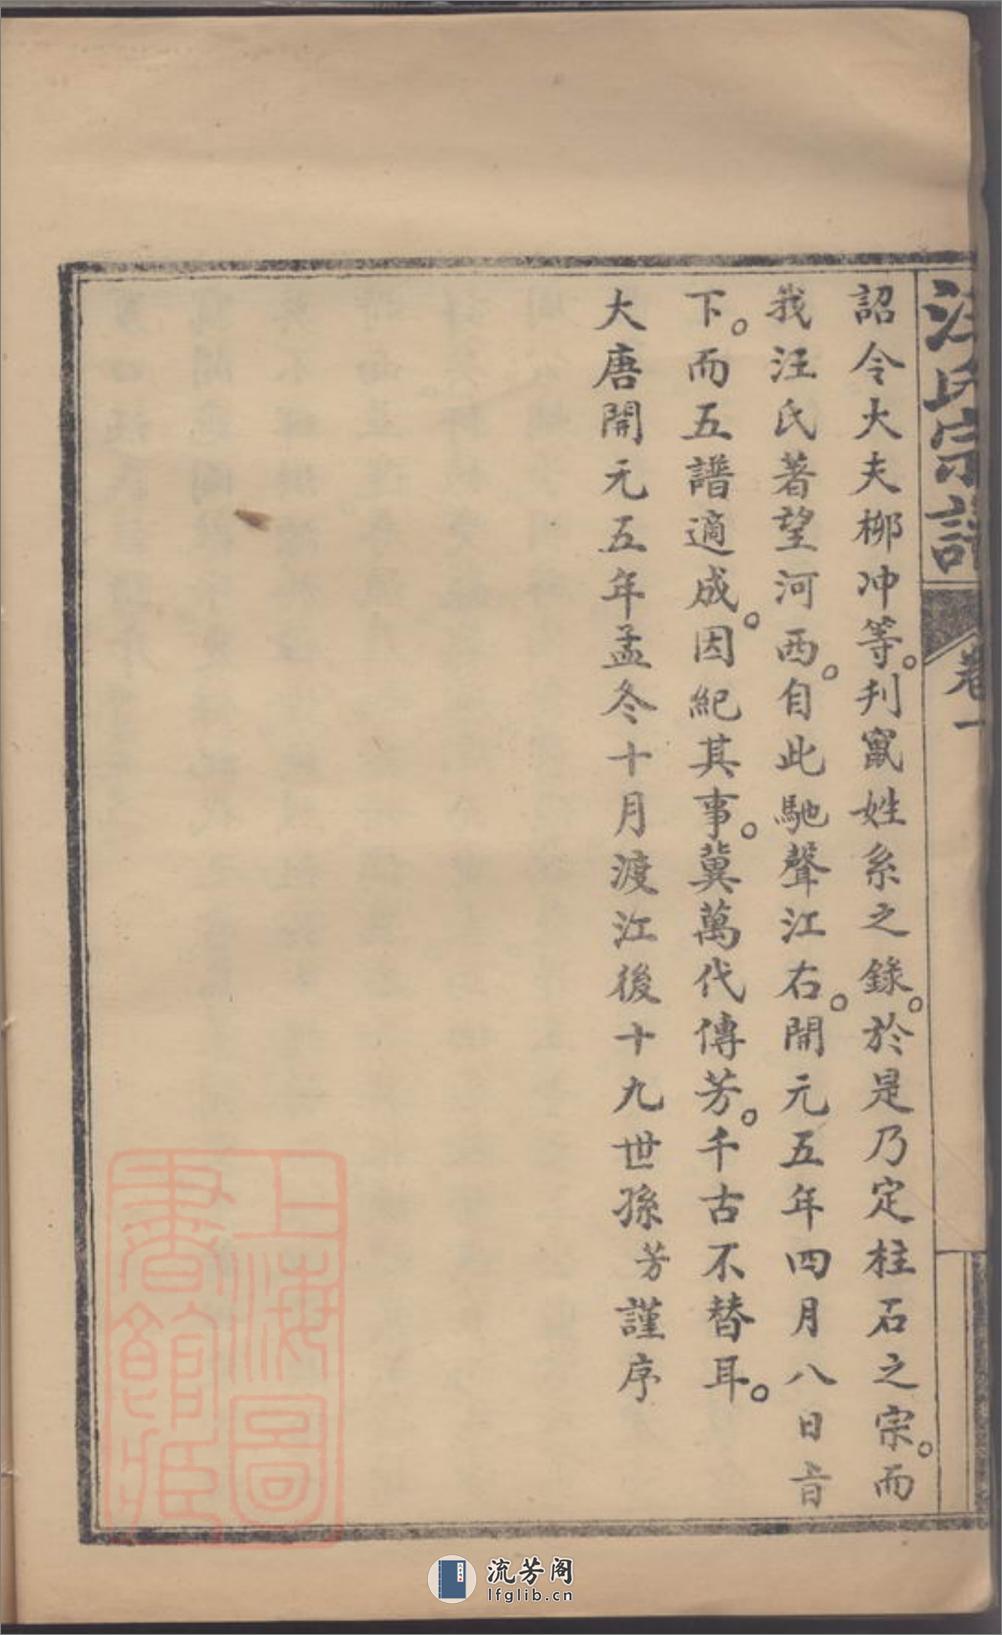 汪氏宗譜
卷一
詔令大夫柳冲等。刋竄姓系之錄。於是乃定柱石之宗。而
我汪氏著望河西。自此馳聲江右。開元五年四月八日旨
下。而五譜適成。因紀其事。冀萬代傳芳。千古不替耳。
大唐開元五年孟冬十月渡江後十九世孫芳謹序
上海圖
書館藏
流芳阁
lfglib.cn